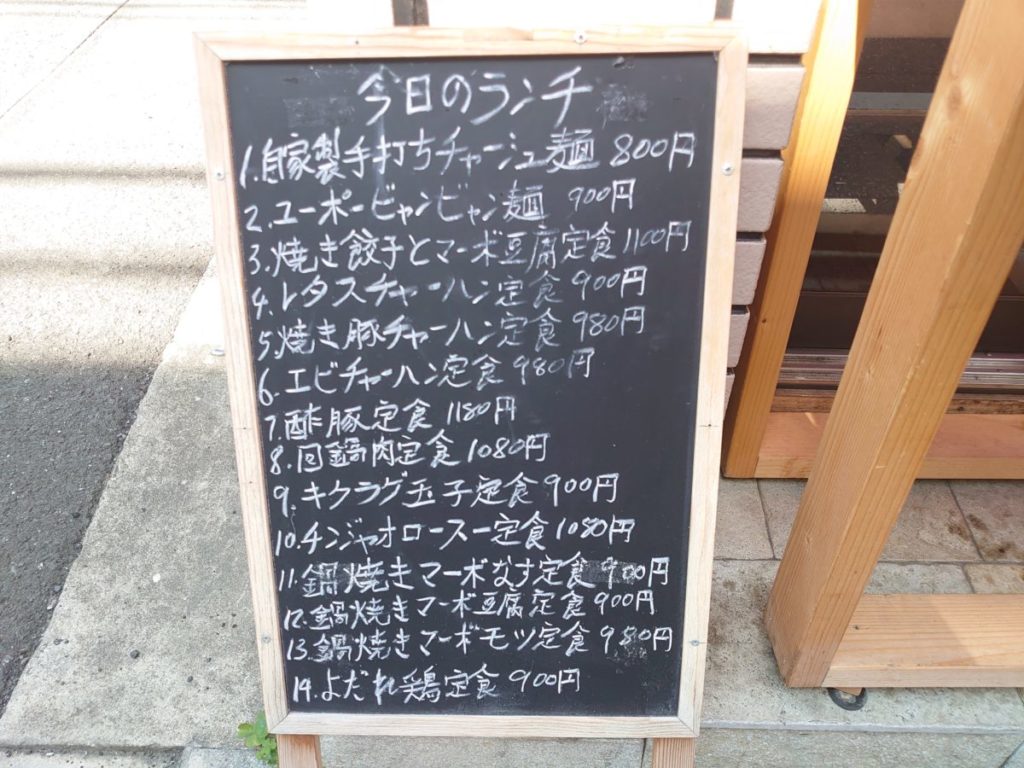 今日のランチ
1.自家製手打ちチャーシュー麺 800円
2.ユーポービャンビャン麺 900円
3.焼き餃子とマーボ豆腐定食1100円
4.レタスチャーハン定食900円
5.焼き豚チャーハン定食980円
6.エビチャーハン定食980円
7.酢豚定食1180円
8.回鍋肉定食1080円
9.キクラグ玉子定食900円
10.チンジャオロースー定食1080円
11.鍋焼きマーボなす定食900円
12.鍋焼きマーボ豆腐定食900円
13.鍋焼きマーボモツ定食980円
14.よだれ鶏定食900円